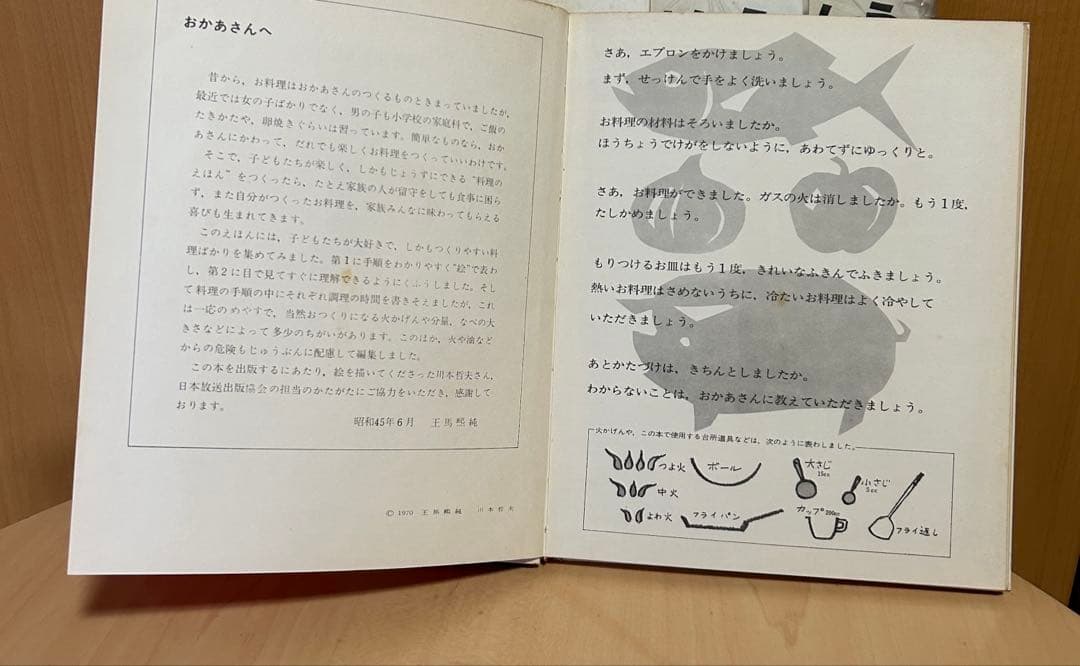 おかあさんへ
昔から，お料理はおかあさんのつくるものときまっていましたが，
最近では女の子ばかりでなく，男の子も小学校の家庭科で，ご飯の
たきかたや，卵焼きぐらいは習っています。簡単なものなら，おか
あさんにかわって，だれでも楽しくお料理をつくっていいわけです。
そこで，子どもたちが楽しく，しかもじょうずにできる“料理の
えほん”をつくったら，たとえ家族の人が留守をしても食事に困ら
ず，また自分がつくったお料理を，家族みんなに味わってもらえる
喜びも生まれてきます。
このえほんには，子どもたちが大好きで，しかもつくりやすい料
理ばかりを集めてみました。第1に手順をわかりやすく“絵”で表わ
し，第2に目で見てすぐに理解できるようにくふうしました。そし
て料理の手順の中にそれぞれ調理の時間を書きそえましたが，これ
は一応のめやすで，当然おつくりになる火かげんや分量，なべの大
きさなどによって多少のちがいがあります。このほか，火や油など
からの危険もじゅうぶんに配慮して編集しました。
この本を出版するにあたり，絵を描いてくださった川本哲夫さん，
日本放送出版協会の担当のかたがたにご協力をいただき，感謝して
おります。
昭和45年6月　王馬熙純
©1970 王馬熙純　川本哲夫
さあ，エプロンをかけましょう。
まず，せっけんで手をよく洗いましょう。
お料理の材料はそろいましたか。
ほうちょうでけがをしないように，あわてずにゆっくりと。
さあ，お料理ができました。ガスの火は消しましたか。もう1度，
たしかめましょう。
もりつけるお皿はもう1度，きれいなふきんでふきましょう。
熱いお料理はさめないうちに，冷たいお料理はよく冷やして
いただきましょう。
あとかたづけは，きちんとしましたか。
わからないことは，おかあさんに教えていただきましょう。
火かげんや，この本で使用する台所道具などは，次のように表わしました。
つよ火
ボール
大さじ
15cc
小さじ
5cc
中火
カップ200cc
よわ火
フライパン
フライ返し